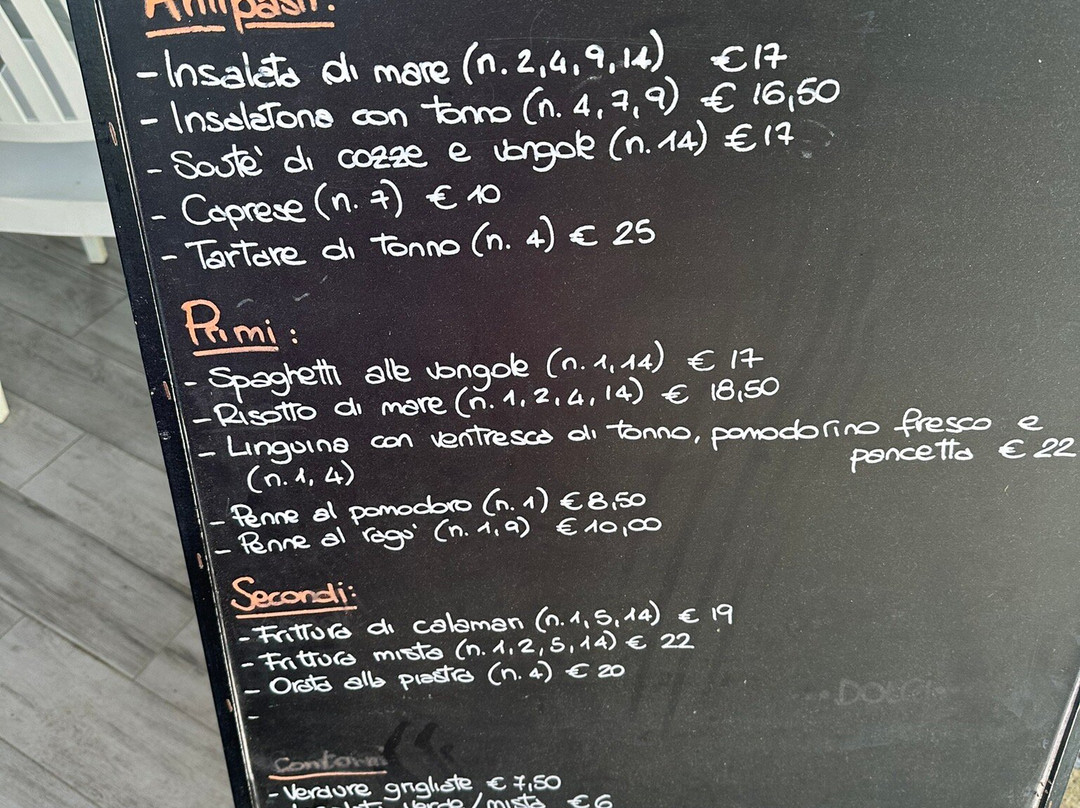 Antipasti:
- Insalata di mare (n. 2,4,9,14) €17
- Insalatona con tonno (n. 4,7,9) € 16,50
- Soutè di cozze e vongole (n. 14) €17
- Caprese (n. 7) € 10
- Tartare di tonno (n. 4) € 25
Primi:
- Spaghetti alle vongole (n. 1,14) € 17
- Risotto di mare (n. 1,2,4,14) € 18,50
- Linguina con ventresca di tonno, pomodorino fresco e
pancetta € 22
(n. 1, 4)
- Penne al pomodoro (n. 1) €8,50
- Penne al ragu' (n. 1,9) €10,00
Secondi:
- Frittura di calamari (n. 1,5,14) € 19
- Frittura mista (n. 1,2,5,14) € 22
- Orata alla piastra (n. 4) € 20
-
DOLCI
Contorni
- Verdure grigliate € 7,50
- Insalata verde/mista €6